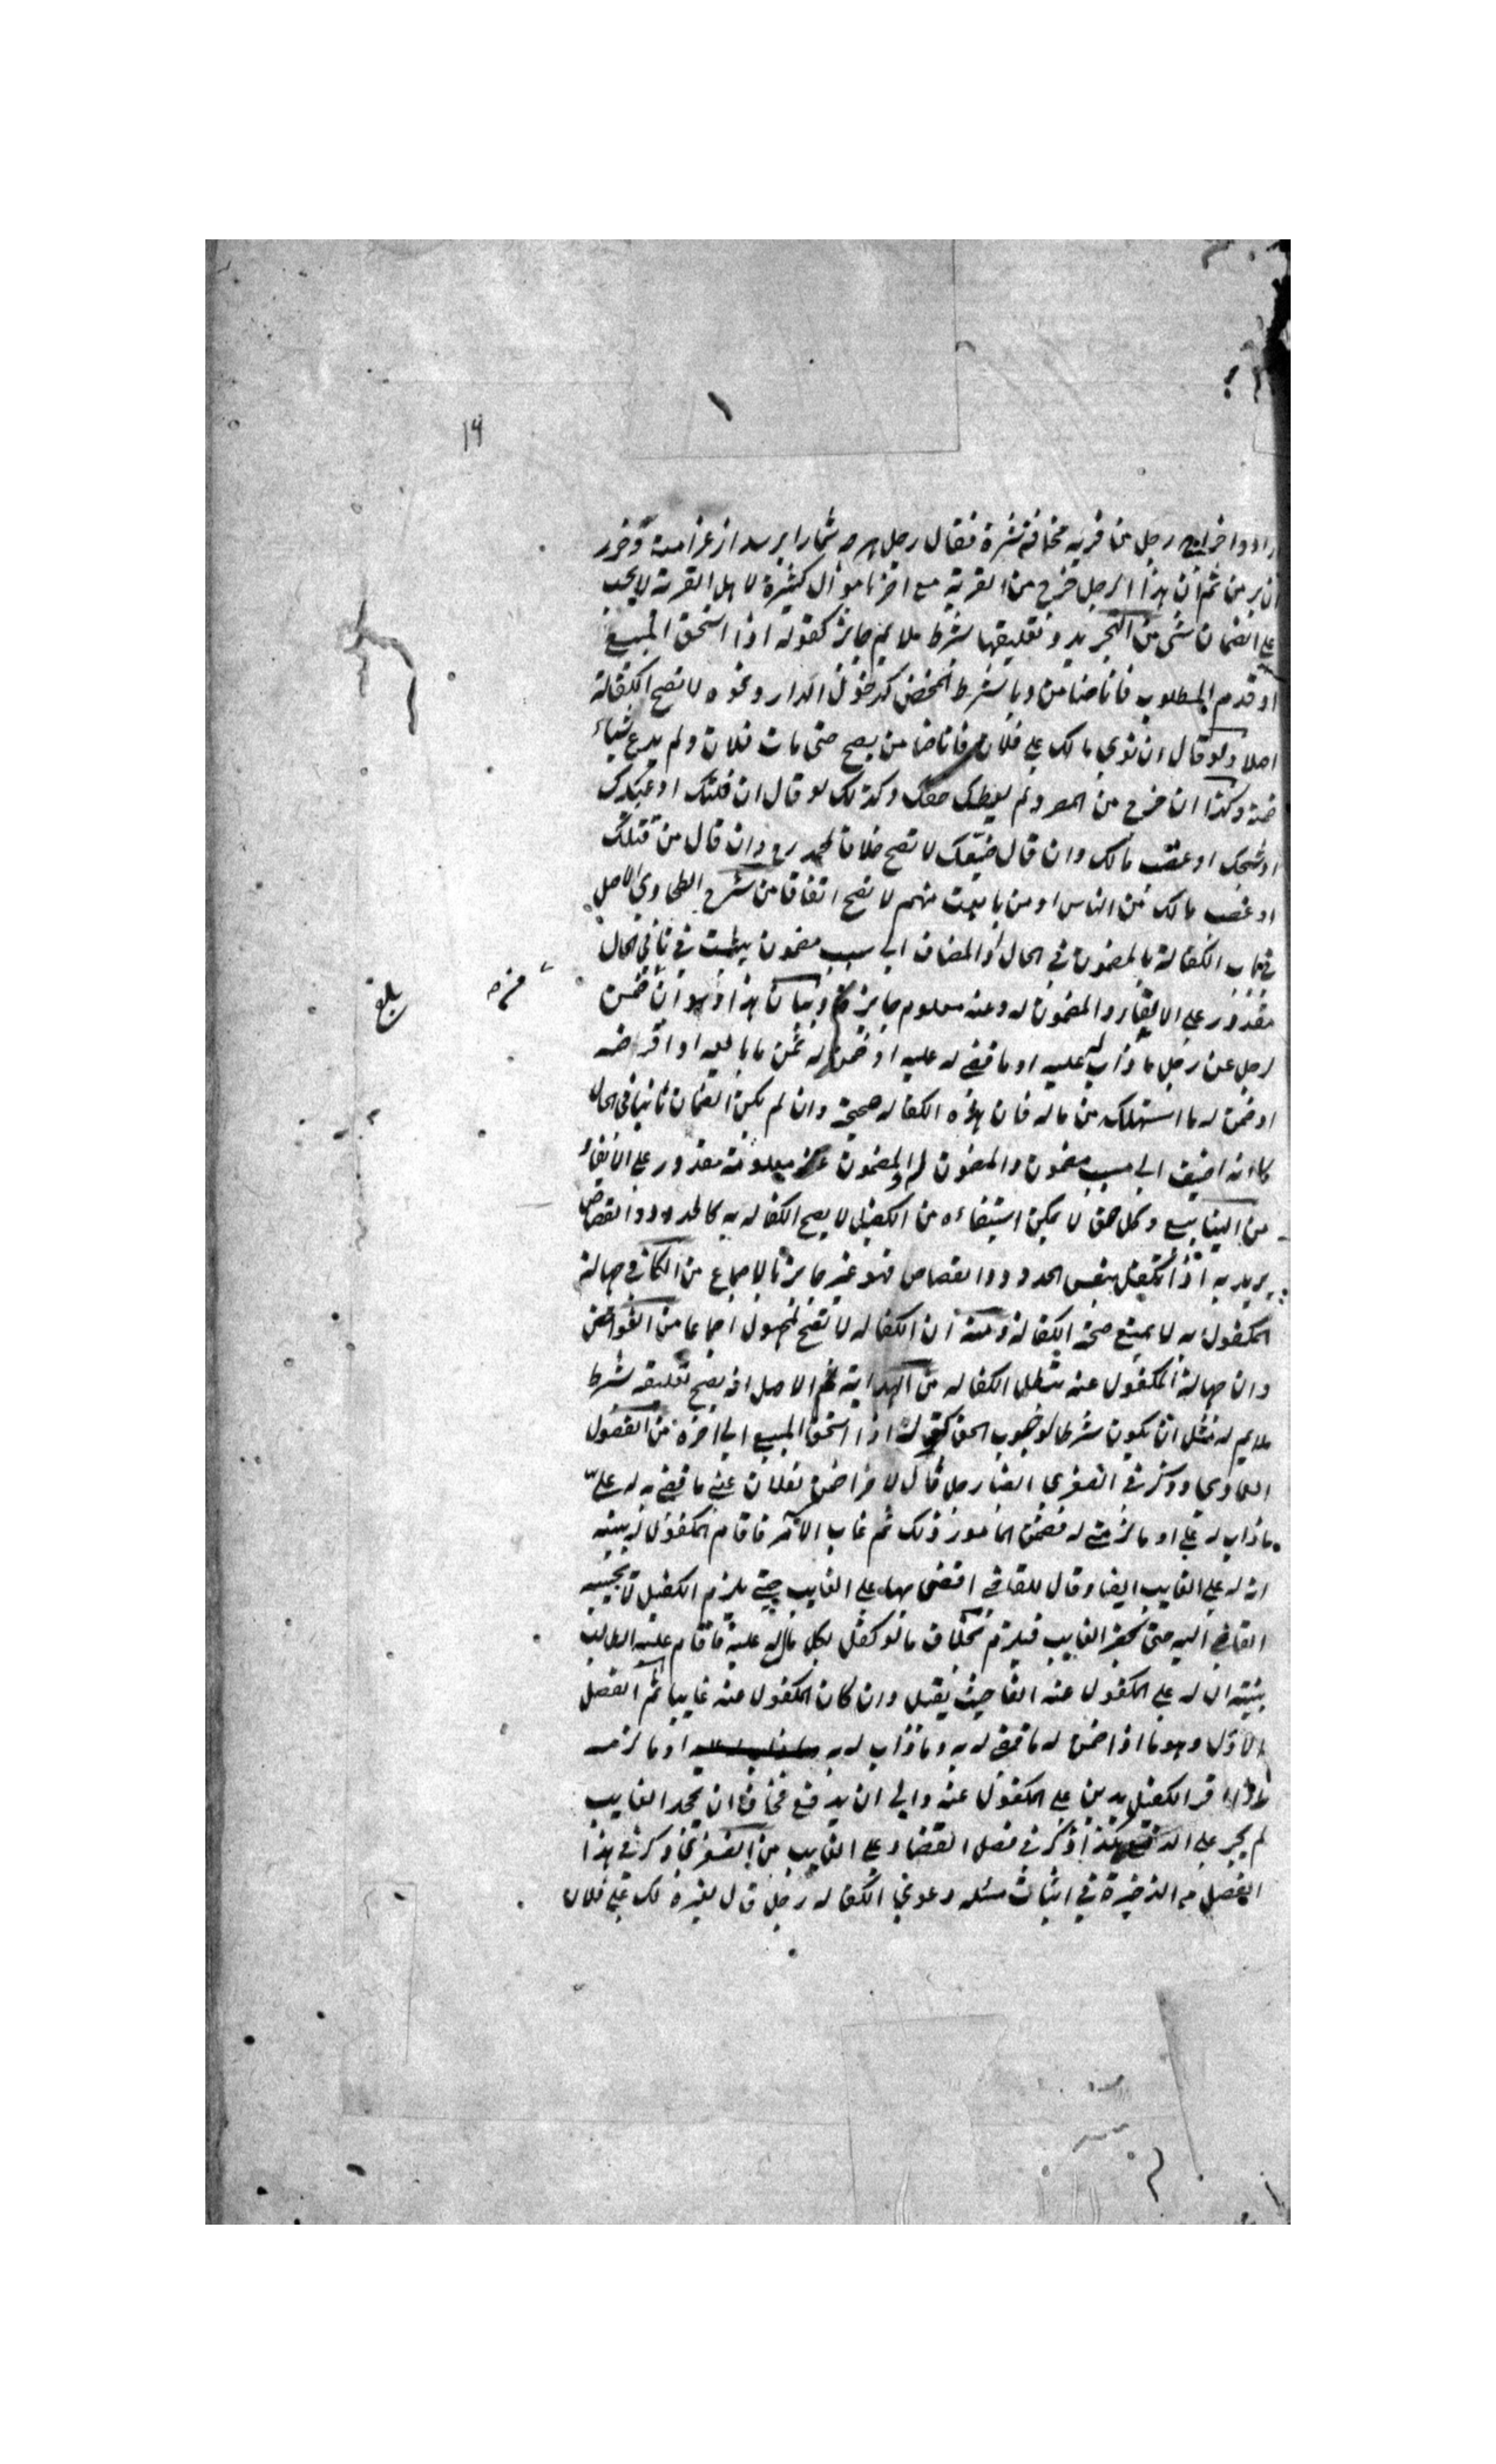 ۱۹
رجل من قرية مخافة شره فقال رجل هرچه شمارا برسد از غرامت وخور
آن بر من ثم ان هذا الرجل خرج من القرية مع اخر نا موال كثيرة لا هل القرية لا يجب
على الضمان شى من التجريد وتعليقها بشرط ملايم جائز كقوله اذا استحق المبيع
او قدم المطلوب فانا ضامن وبالشرط المحض كدخول الدار ونحوه لا تصح الكفالة
اصلا ولو قال ان توي مالك على فلان فانا ضامن يصح حتى مات فلان ولم يدع شياء
وكذا ان خرج من المصر ولم يعطك حقك وكذلك لو قال ان قتلك او عبدك
او شجك او غصب مالك وان قال ضيعتك لا تصح خلافا لمحمد رح وان قال من قتلك
او غصب مالك من الناس او من بايعت منهم لا تصح اتفاقا من شرح الطحاوي الاصل
في باب الكفالة بالمضمون في الحال او المضاف الى سبب مضمون يثبت في ثاني الحال
مقدور على الايفاء والمضمون له وعنه معلوم جائز وبيان هذا وهو ان ضمن
لرجل عن رجل ما ذاب له عليه او ما قضى له عليه او ضمن له ثمن ما بايعه او اقرضه
او ضمن له ما استهلك من ماله فان هذه الكفالة صحيحة وان لم يكن الضمان ثابتا في الحال
كانه اضيف الى سبب مضمون والمضمون له والمضمون عنه معلومة مقدور على الايفاء
من الينابيع وكل حق لا يمكن استيفاءه من الكفيل لا يصح الكفاله به كالحدود والقصاص
يريد به اذا تكفل بنفس الحدود والقصاص فهو غير جائز بالاجماع من الكافي جهالة
المكفول به لا يمنع صحة الكفالة ومنه ان الكفاله لا تصح لمجهول اجماعا من الفوائض
وان جهالة المكفول عنه تبطل الكفاله من الهداية ثم الاصل انه يصح تعليقه بشرط
ملايم له مثل ان يكون شرطا لوجوب الحق كقوله اذا استحق المبيع الى اخره من الفصول
العمادي وذكر في الصغرى ايضا رجل قال لاخر اضمن لفلان عني ما قضى به له علي
ما ذاب له علي او ما لزمني له فضمن المامور ذلك ثم غاب الآمر فاقام المكفول له بينة
ان له على الغايب الفا وقال للقاضي اقضى بها على الغايب حتى يلزم الكفيل لا يجيبه
القاضي اليه حتى يحضر الغايب فيلزم بخلاف ما لو كفل بكل مال له عليه فاقام عليه الطالب
بينة ان له على المكفول عنه الفا حيث يقبل وان كان المكفول عنه غايبا ثم الفصل
الاول وهو ما اذا ضمن له ما قضى له به وما ذاب له به او ما لزمه
اقر الكفيل بدين على المكفول عنه وابى ان يدفع مخافة ان يجحد الغايب
لم يجبر على الدفع هكذا ذكر في فصل القضاء على الغايب من الصغرى وذكر في هذا
الفصل من الذخيرة في اثبات مسئلة دعوى الكفاله رجل قال لغيره لك على فلان
بلغ